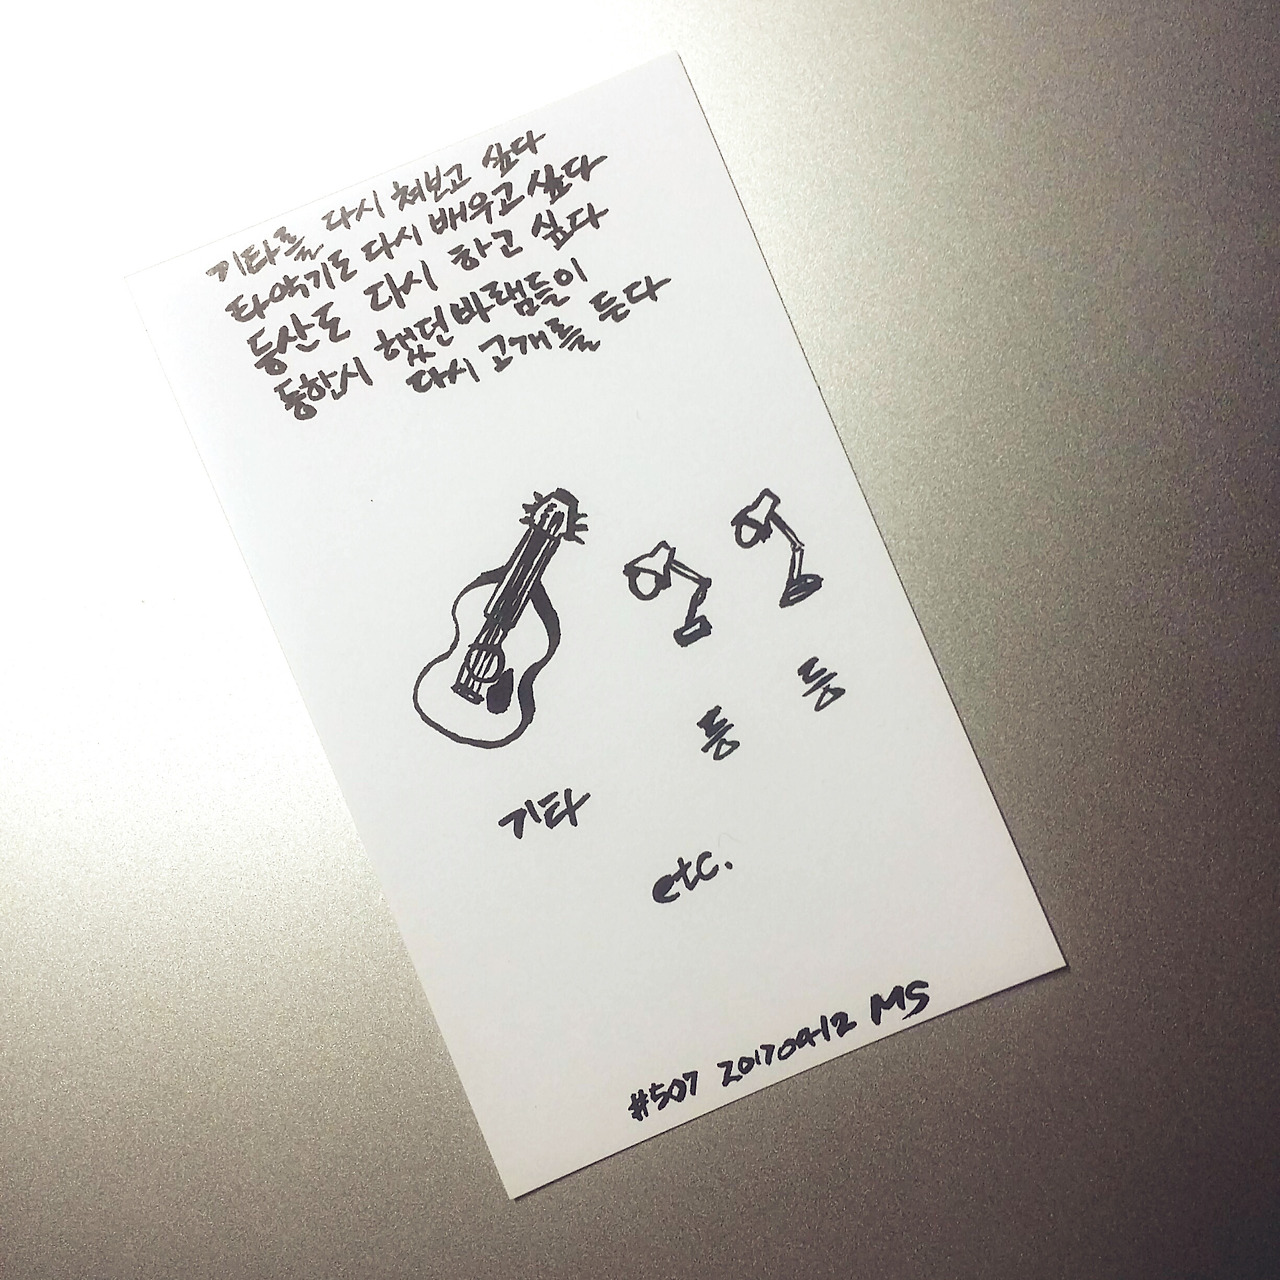 기타를 다시 쳐보고 싶다
타악기도 다시 배우고 싶다
등산도 다시 하고 싶다
등한시 했던 바램들이
다시 고개를 든다
기타 등 등
etc.
#507 20170912 MS